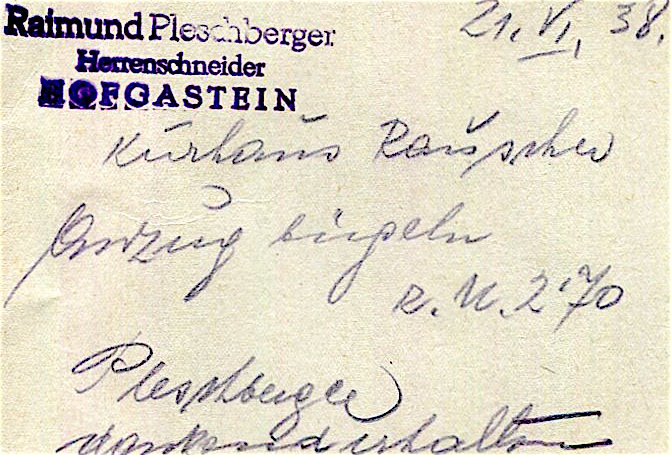 Raimund Pleschberger
Herrenschneider
HOFGASTEIN
21. VI. 38.
Kurhaus Rauscher
Anzug bügeln
R.M. 2·70
Pleschberger
dankend erhalten